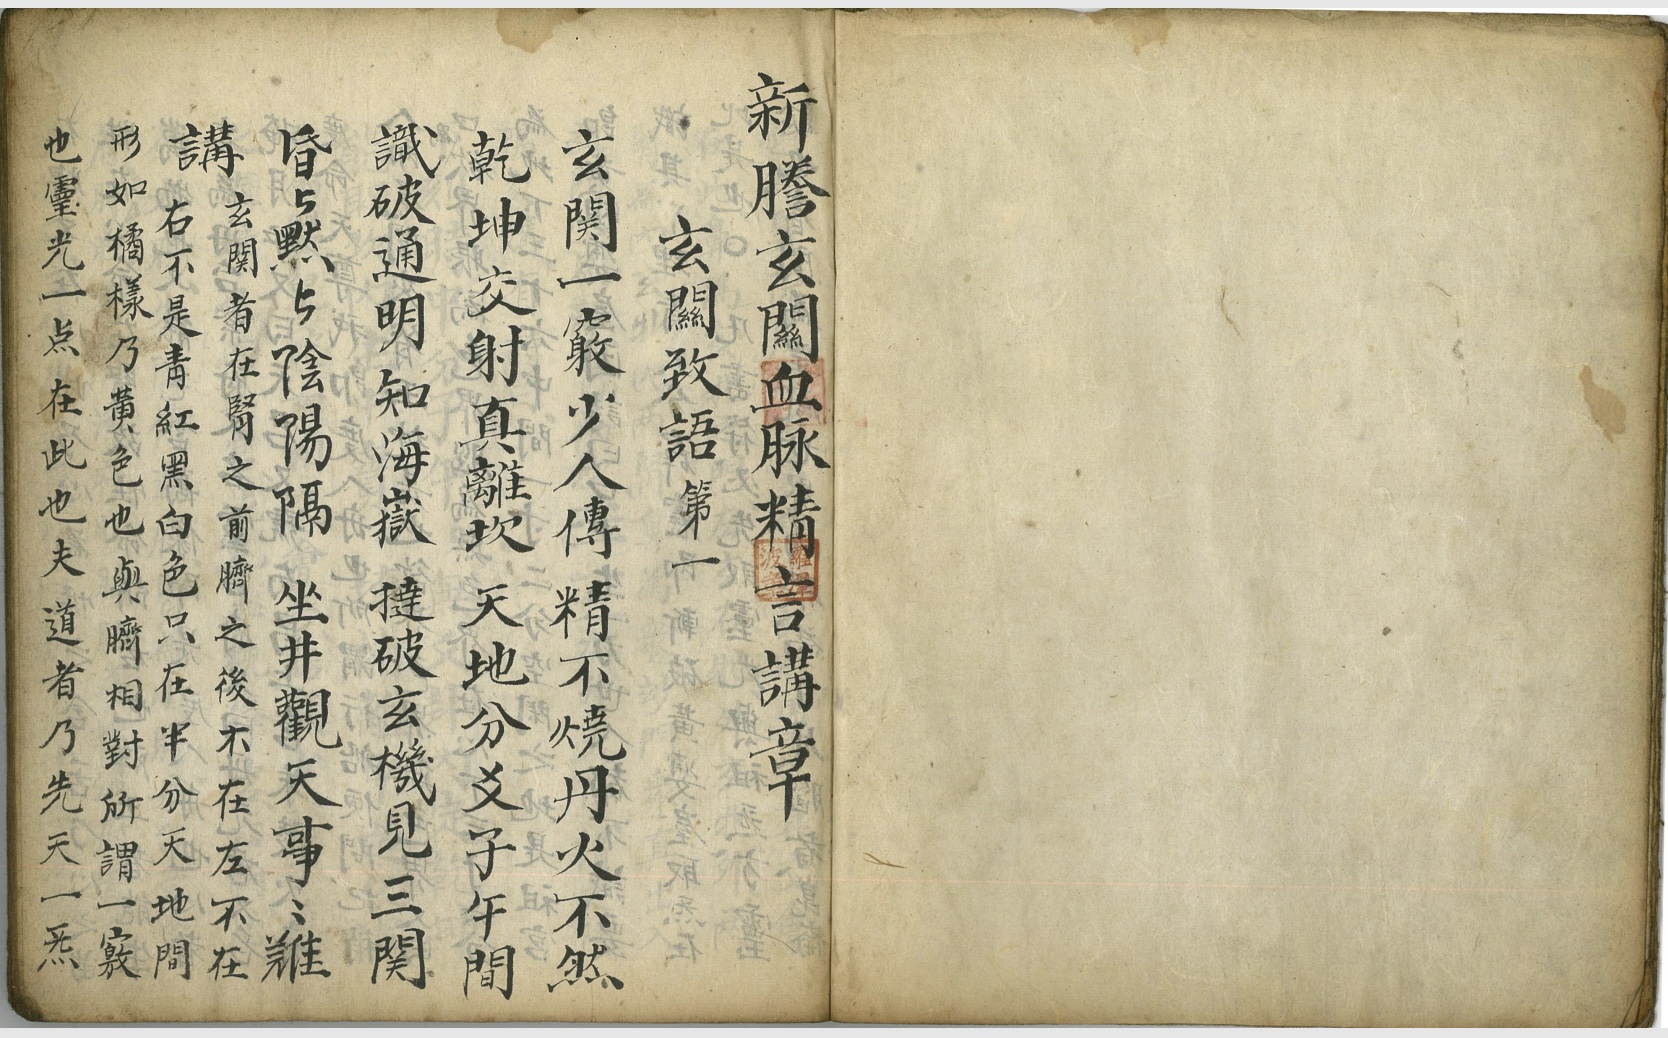 新謄玄關血脉精言講章
玄關致語第一
玄関一竅少人傳 精不燒丹火不然
乾坤交射真離坎 天地分爻子午間
識破通明知海嶽 撻破玄機見三関
昏ヒ默ヒ陰陽隔 坐井觀天事〻難
講 玄関者在腎之前臍之後不在左不在
右不是青紅黑白色只在半分天地間
形如橘樣乃黃色也與臍相對所謂一竅
也靈光一点在此也夫道者乃先天一炁